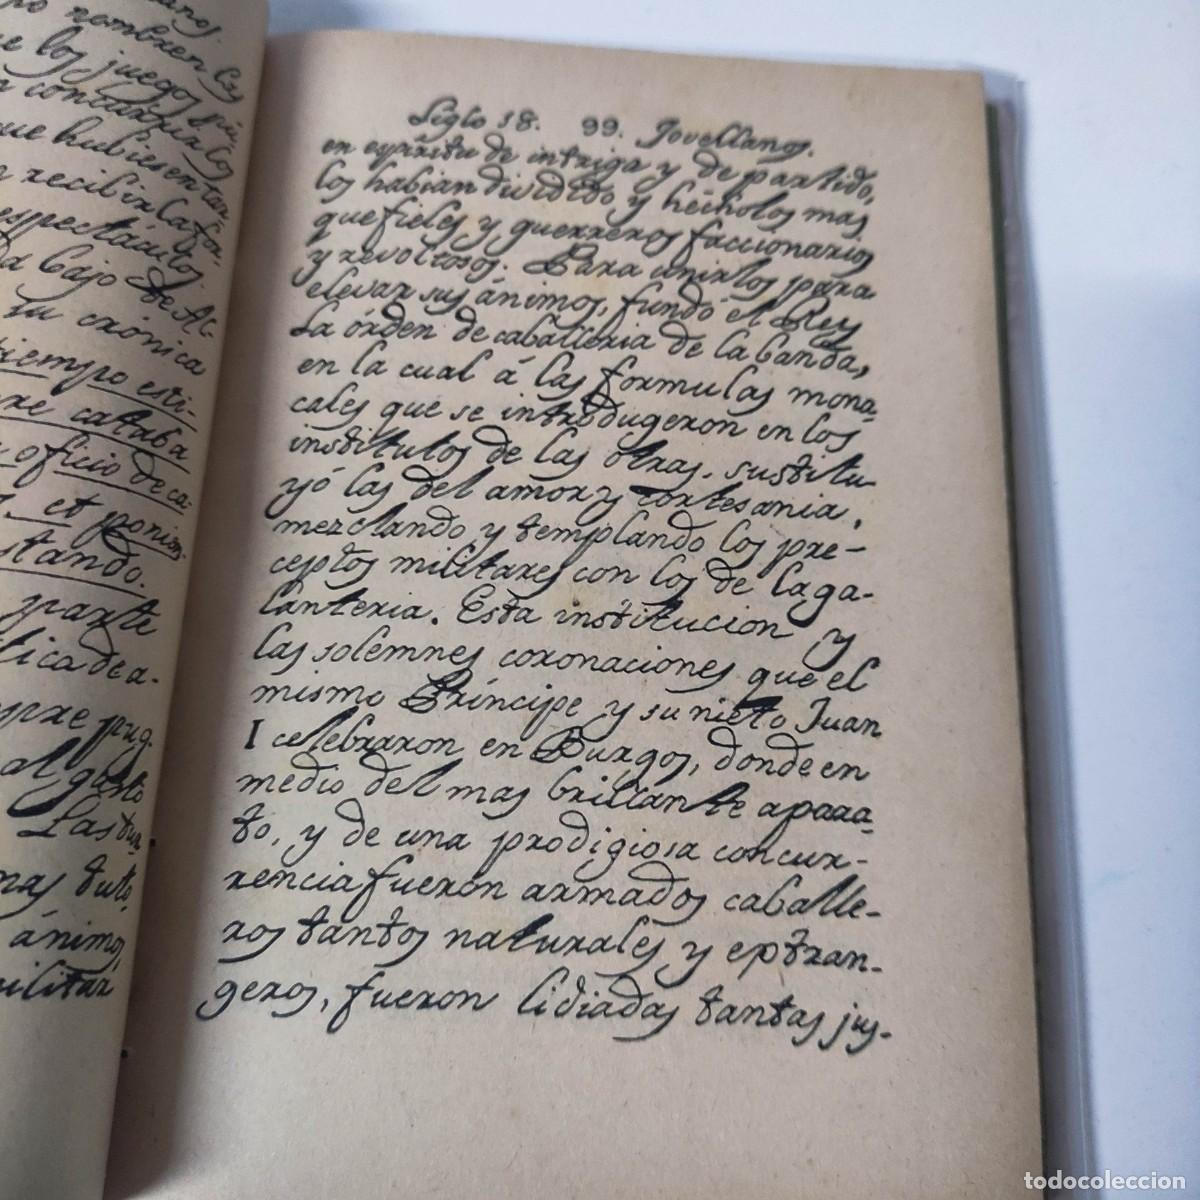 anos.
po nombren las
e los juegos pú-
n concurrir los
ue hubiesen tan
n recibir la for-
espectáculos
da bajo de Al-
su crónica
tiempo esti-
re cataba
y oficio de ca-
et ponien
stando.
parte
lica de a-
pre pug.
al gasto
Las tur
mas tuto
ánimos,
militar
Siglo 18. 99. Jovellanos.
en espíritu de intriga y de partido,
los habian dividido y hécholos mas
que fieles y guerreros faccionarios
y revoltosos. Para unirlos para
elevar sus ánimos, fundó el Rey
la órden de caballeria de la banda,
en la cual á las formulas mona-
cales que se introdugeron en los
institutos de las otras, sustitu
yó las del amor y cortesania,
mezclando y templando los pre-
ceptos militares con los de la ga-
lanteria. Esta institucion y
las solemnes coronaciones que el
mismo Príncipe y su nieto Juan
I celebraron en Burgos, donde en
medio del mas brillante apara-
to, y de una prodigiosa concur-
rencia fueron armados caballe-
ros tantos naturales y extran-
geros, fueron lidiadas tantas jus-
todocoleccion